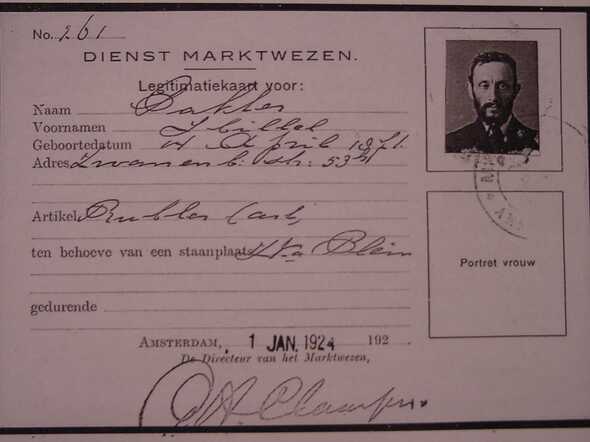 No. 261
DIENST MARKTWEZEN.
Legitimatiekaart voor:
Naam Bakker
Voornamen
Geboortedatum 4 April 1871
Adres Zwanenb: str: 53
Artikel
ten behoeve van een staanplaats Plein
gedurende
AMSTERDAM, 1 JAN. 1924 192
De Directeur van het Marktwezen,
Portret vrouw